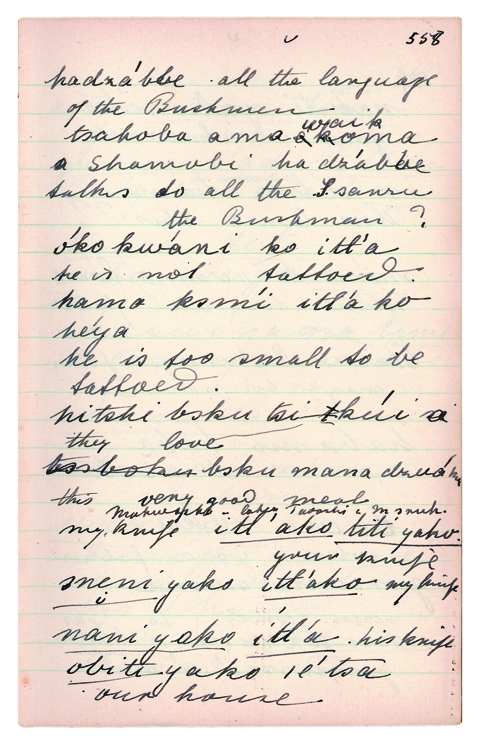 558
hadzábbe all the language
of the Bushmen
work
tsahoba ama koma
a Shamobi hadzabbe
talks do all the Isanzu
the Bushman ?
óko kwáni ko itl'a
he is not tattoed.
hama ksmíi itl'a ko
héya
he is too small to be
tattoed.
hitshi bsku tsi kúi a
they love
bsku mana
this very good meat
my knife itl'ako titi yako
your knife
sneni yako itl'ako my knife
nani yako itl'a his knife
obiti yako ié tsa
our house.